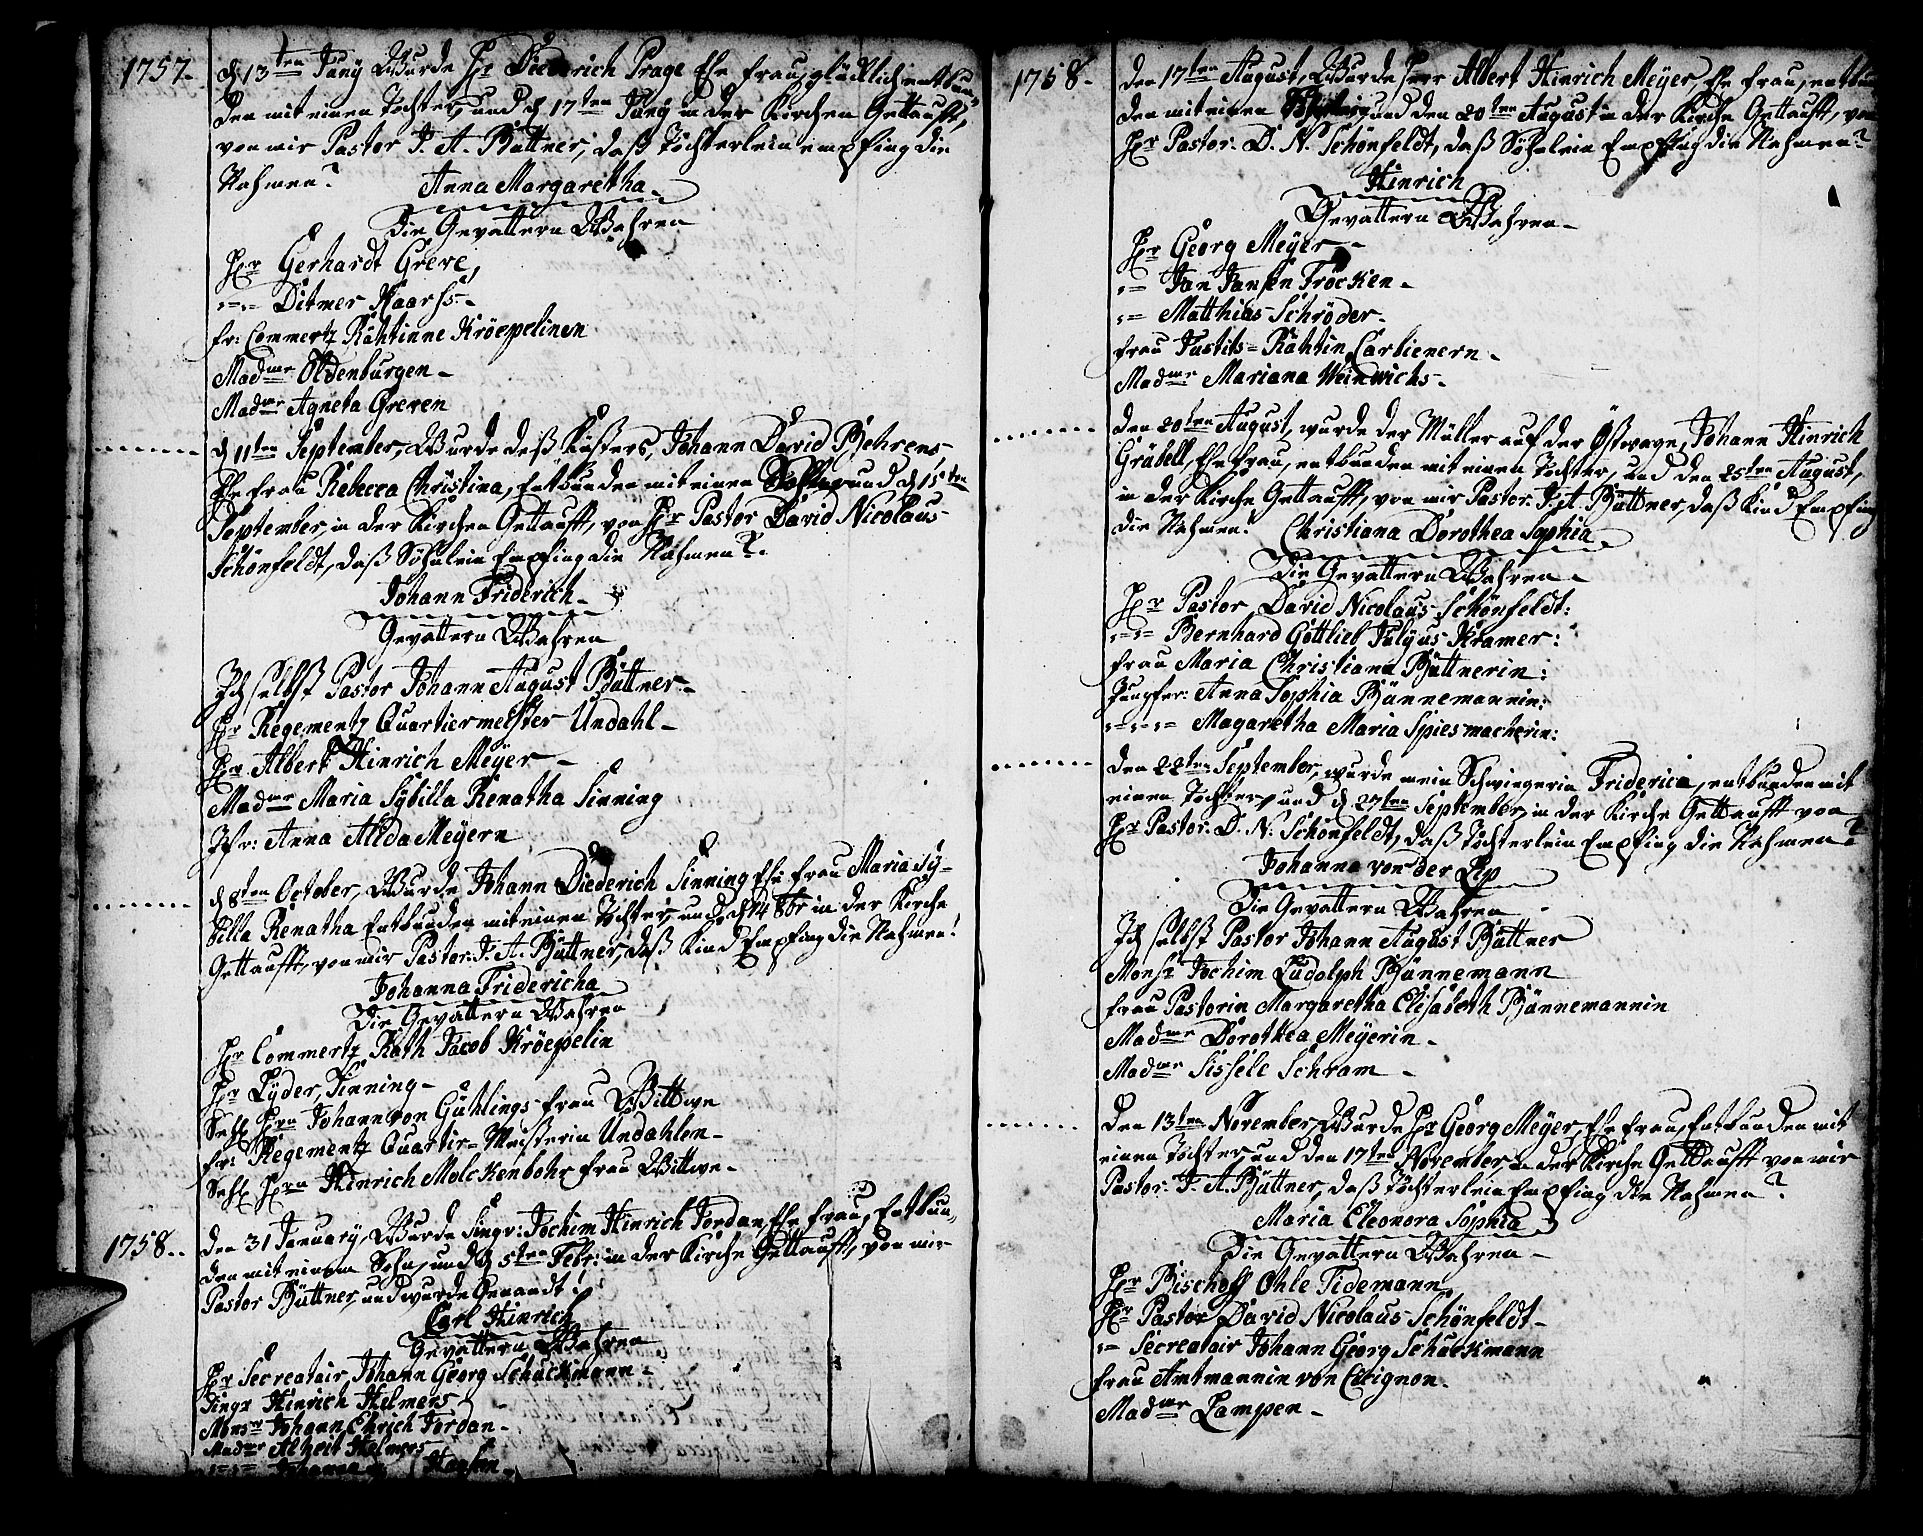 1757.
d 13ten Juny Wurde Hr Diederich Prage Ehe frau, glücklich entbun„
den mit einen Tochter, und d 17ten Juny in der Kirchen Gettaufft,
von mir Pastor J. A. Büttner, daß Töchterlein empfing die
Nahmen? Anna Margaretha.
Die Gevattern Wahren
Hr Gerhardt Greve,
Ditmer Kaarss.
fr: Commertz Rähtinne Kröepelinen
Madme Oldenburgen
Madme Agneta Greven
d 11ten September, Wurde deß Küsters, Johann David Behrens,
Ehe frau Rebecca Christina, Entbunden mit einen Sohn und d 15ten
September, in der Kirchen Gettaufft, von Hr Pastor David Nicolaus
Schönfeldt, daß Söhnlein Empfing die Nahmen?
Johann Friderich
Gevattern Wahren
Ich selbst Pastor Johann August Büttner
Hr Regementz Quartiermeister Undahl
Hr Albert Hinrich Meyer
Madme Maria Sybilla Renatha Sinning
Jfr: Anna Alida Meyern
d 8ten October, Wurde Johann Diederich Sinning Ehe frau Maria Sy-
billa Renatha Entbunden mit einen Tochter, und d 14 8br in der Kirche
Gettaufft, von mir Pastor. J. A. Büttner, daß Kind Empfing die Nahmen!
Johanna Fridericha
Die Gevattern Wahren
Hr Commertz Rath Jacob Kröepelin
Hr Lyder, Sinning
Sehl Hrn Johann von Gühlings frau Wittwe
fr: Regementz Quartir=Meisterin Undahlen
Sehl Hrn Hinrich Molckenbohr frau Wittwe
1758.
den 31 January, Wurde Singr: Jochim Hinrich Jordan, Ehe frau, Entbun„
den mit einem Sohn, und d 5ten Febr: in der Kirche Gettaufft, von mir
Pastor Büttner, und wurde Genandt!
Carl Hinrich
Gevattern Wahren
Hr Secreatair, Johann Georg Schuckmann
Singr Hinrich Helmers
Monsr Johann Ehrich Jordan
Madme Alheit Helmers
Johanna
1758.
den 17ten August, Wurde Herr Albert Hinrich Meyer, Ehe frau, entbun
den mit einen und den 20ten August in der Kirche Gettaufft, von
Hr Pastor. D. N. Schönfeldt, daß Söhnlein Empfing die Nahmen?
Hinrich
Gevattern Wahren
Hr Georg Meyer
Jan Jansen Frocken
Matthias Schröder
frau Justits=Rähtin Carbienern
Madme Mariana Weinwichs
den 20ten August, wurde der Müller auf der Östwage, Johann Hinrich
Gräbell, Ehe frau, entbunden mit einen Tochter, und den 25ten August,
in der Kirche Gettaufft, von mir Pastor. J. A. Büttner, daß Kind Empfing
die Nahmen! Christiana Dorothea Sophia
Die Gevattern Wahren
Hr Pastor, David Nicolaus Schönfeldt:
Bernhard Gottlieb Julyus Kramer:
frau Maria Christiana Büttnerin:
Jungfer: Anna Sophia Bünnemannin:
Magaretha Maria Spiesmacherin:
den 22ten September, wurde mein Schwiegerin Friderica, entbunden mit
einen Tochter, und d 27ten September, in der Kirche Gettaufft von
Hr Pastor. D. N. Schönfeldt, daß Töchterlein Empfing die Nahmen?
Johanna von der Lip
Die Gevattern Wahren
Ich selbst Pastor Johann August Büttner
Monsr Jochim Ludolph Bünnemann
frau Pastorin Margaretha Elisabeth Bünnemannin
Madme Dorothea Meyerin
Madme Sissele Schram
den 13ten November, Wurde Hr Georg Meyer, Ehe frau, Entbunden mit
einen Tochter, und den 17ten November, in der Kirche Gettaufft von mir
Pastor. J. A. Büttner, daß Töchterlein Empfing die Nahmen?
Maria Eleonora Sophia
Die Gevattern Wahren
Hr Bischoff Ohle Tidemann
Hr Pastor David Nicolaus Schönfeldt
Secreatair Johann Georg Schuckmann
frau Amtmannin von Cicignon
Madme Lampen